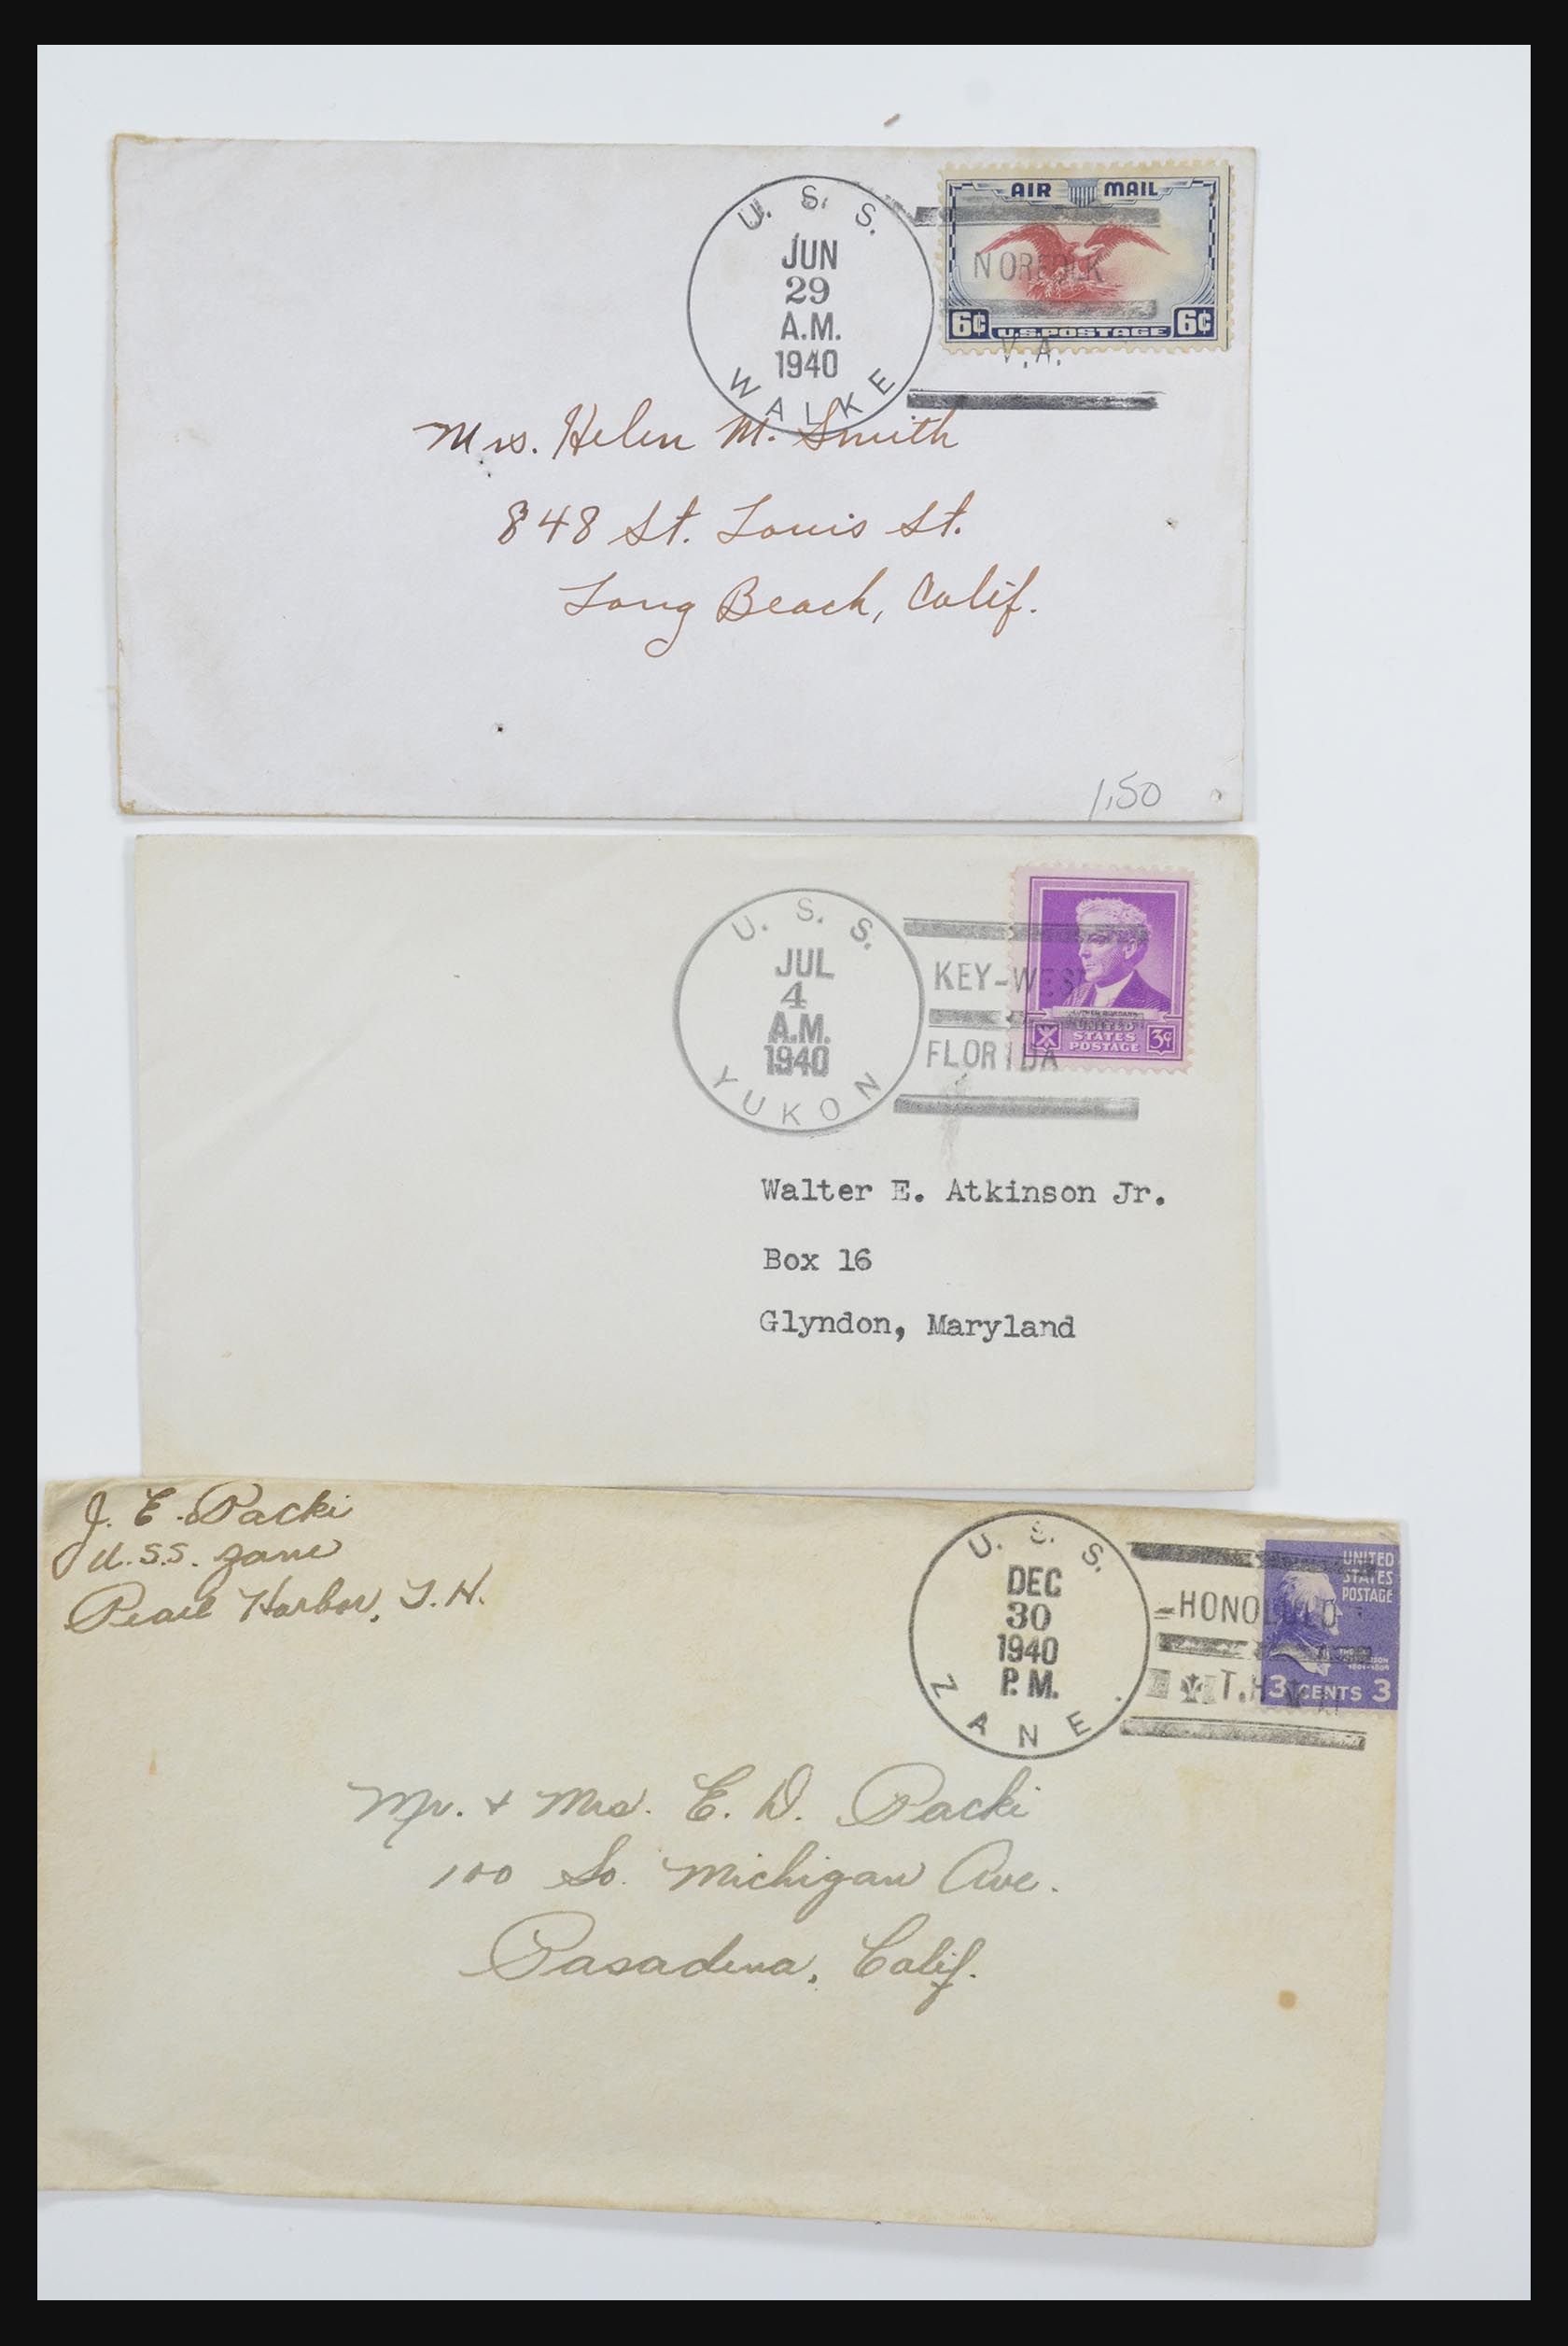 U. S. S.
JUN
29
A.M.
1940
WALKE
AIR MAIL
NORFOLK
6¢ U.S. POSTAGE 6¢
V.A.
Mrs. Helen M. Smith
848 St. Louis St.
Long Beach, Calif.
1,50
U. S. S.
JUL
4
A.M.
1940
YUKON
KEY-WEST
FLORIDA
LUTHER BURBANK
UNITED
STATES
POSTAGE
3¢
Walter E. Atkinson Jr.
Box 16
Glyndon, Maryland
J. E. Packi
U.S.S. Zane
Pearl Harbor, T.H.
U. S. S.
DEC
30
1940
P.M.
ZANE.
-HONOLULU
T.H.
UNITED
STATES
POSTAGE
3 CENTS 3
Mr. + Mrs. E. D. Packi
100 So. Michigan Ave.
Pasadena, Calif.